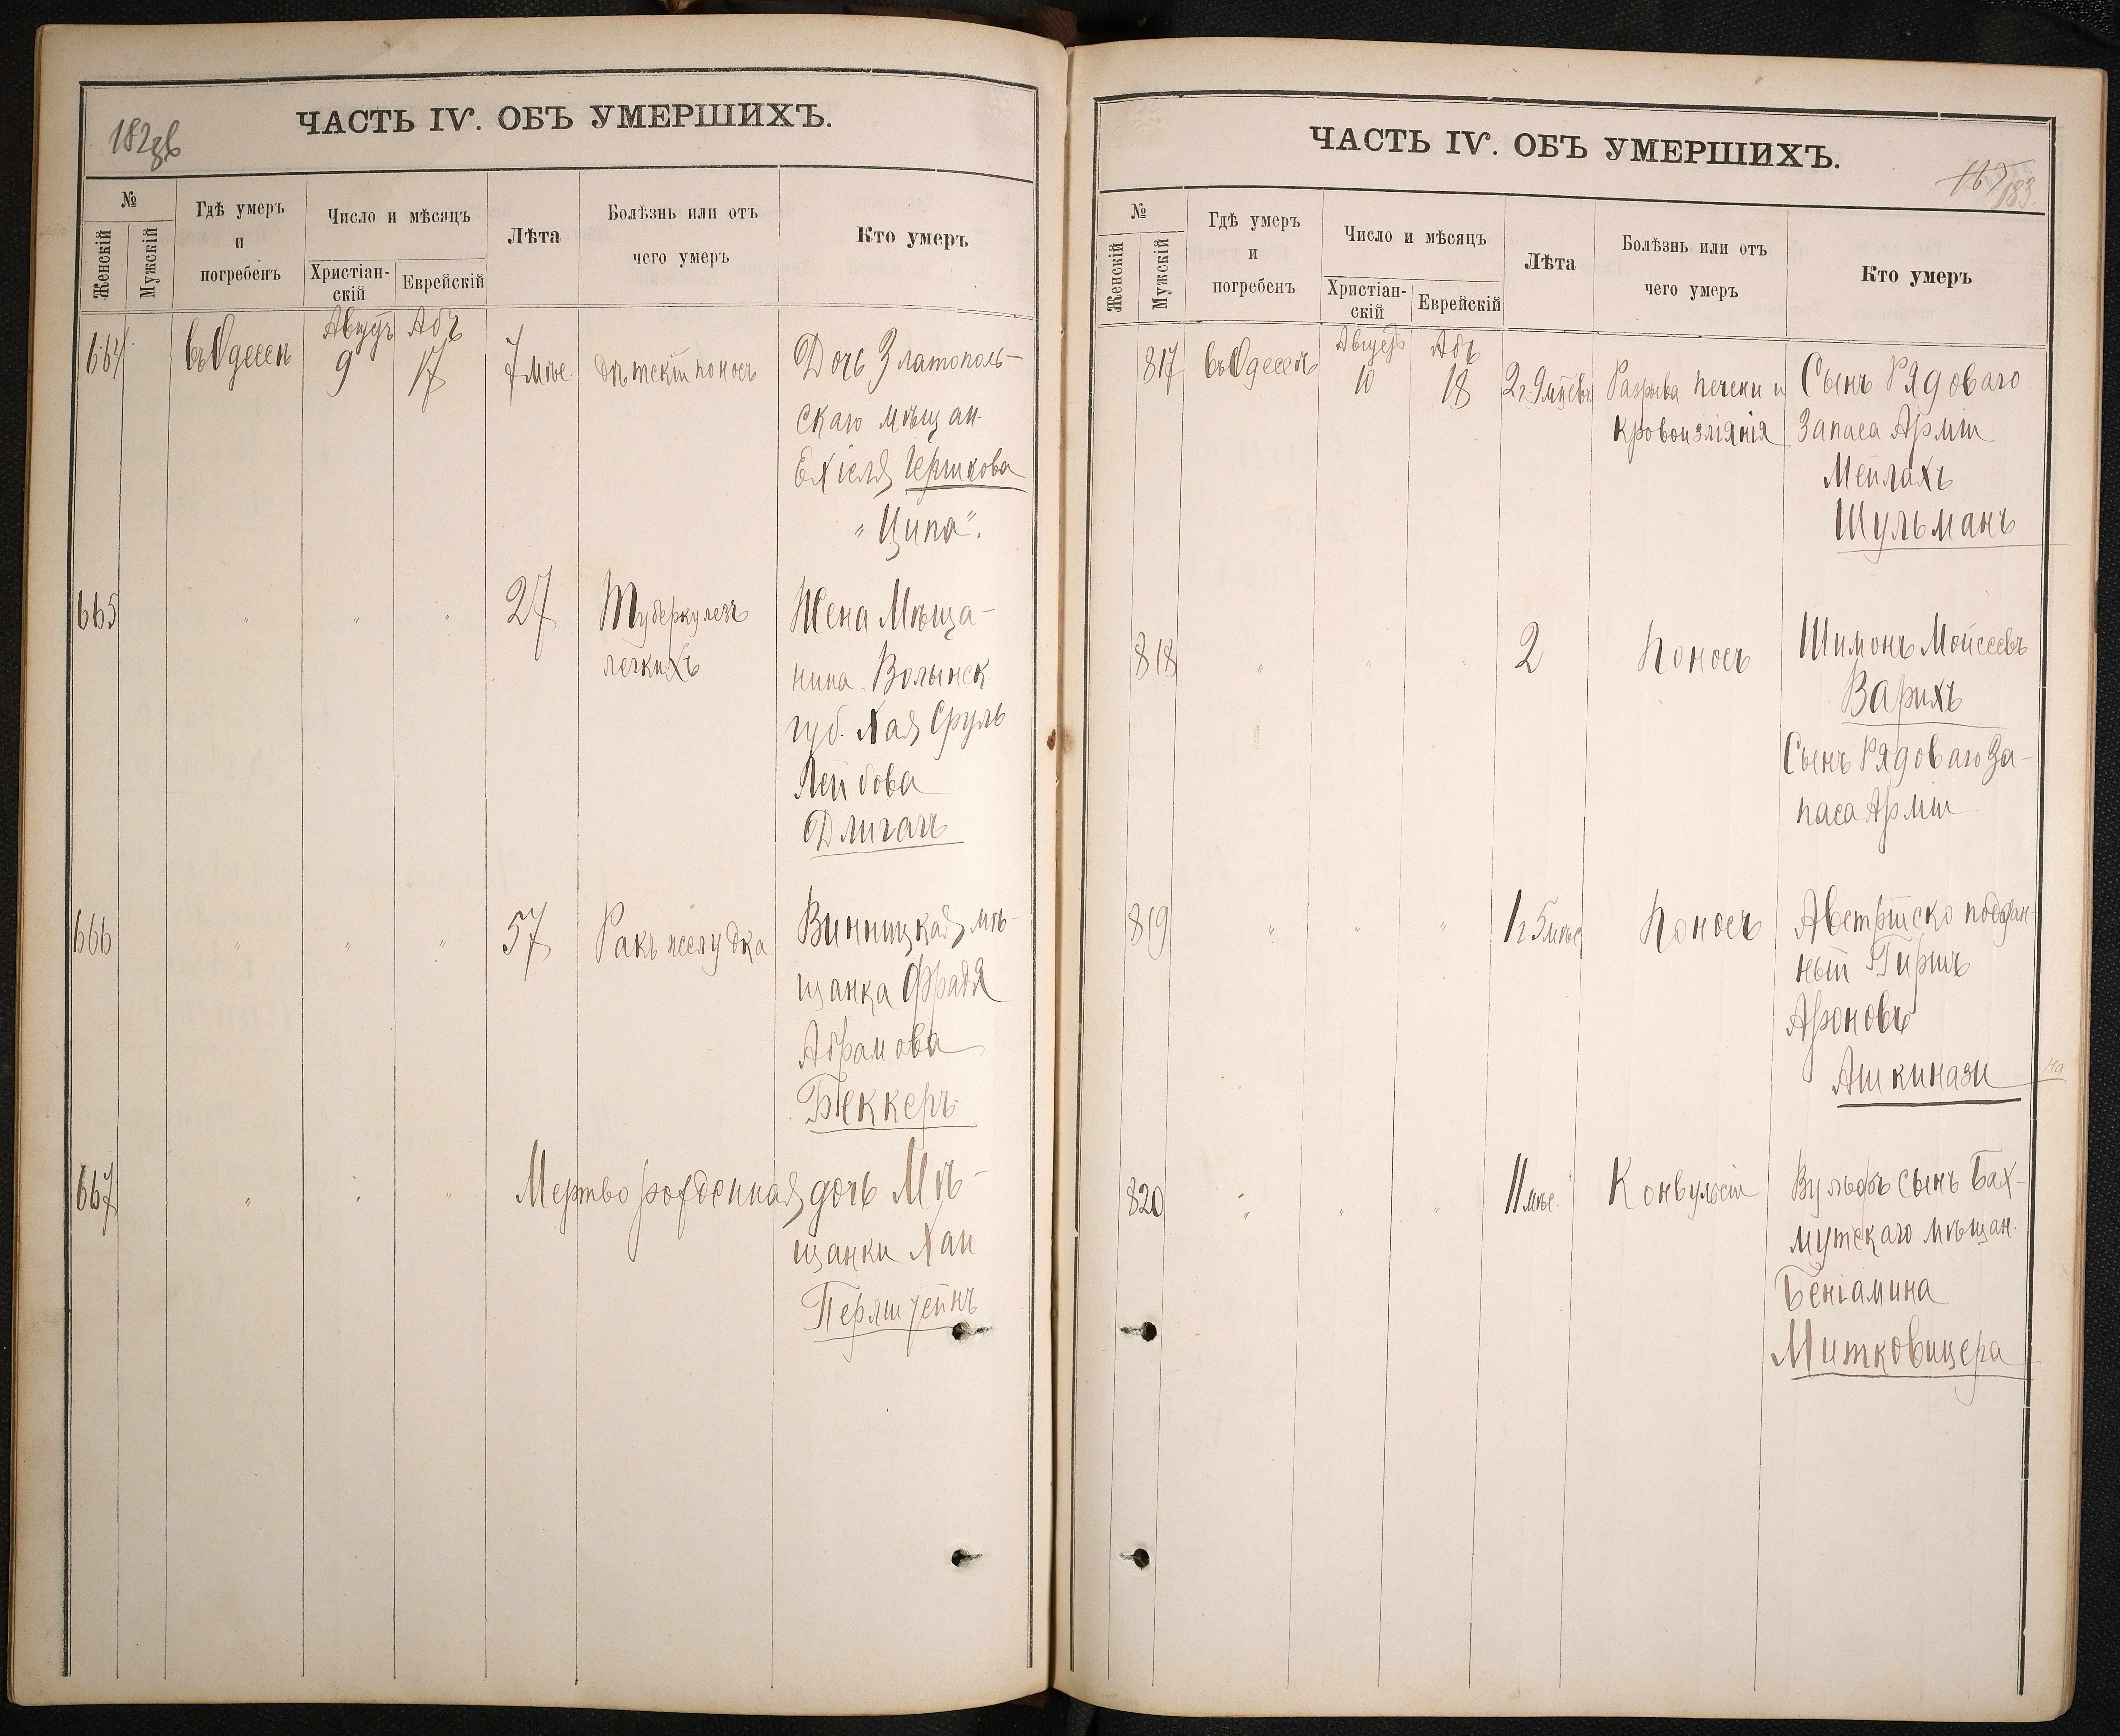 182 об
ЧАСТЬ IV. ОБЪ УМЕРШИХЪ.
№
Женскій
Мужскій
Гдѣ умеръ
и
погребенъ
Число и мѣсяцъ
Христіан-
скій
Еврейскій
Лѣта
Болѣзнь или отъ
чего умеръ
Кто умеръ
664 въ Одессѣ Августъ 9 Абъ 17 7 мѣс. дѣтскій поносъ Дочь Златополь-
скаго мѣщан.
Ехіеля Гершкова
"Ципа".
665 " " " 27 Туберкулезъ Жена Мѣща-
легкихъ нина Волынск
губ. Хая Сруль
Лейбова
Длигачъ
666 " " " 57 Ракъ желудка Винницкая мѣ-
щанка Фрадя
Абрамова
Беккеръ
667 " " " Мертворожденная дочь Мѣ-
щанки Хаи
Перлштейнъ
ЧАСТЬ IV. ОБЪ УМЕРШИХЪ.
183.
№
Женскій
Мужскій
Гдѣ умеръ
и
погребенъ
Число и мѣсяцъ
Христіан-
скій
Еврейскій
Лѣта
Болѣзнь или отъ
чего умеръ
Кто умеръ
817 въ Одессѣ Августъ 10 Абъ 18 2 г. 9 мѣсевъ Разрыва печени и Сынъ Рядоваго
кровоизліянія Запаса Арміи
Мейлахъ
Шульманъ
818 " " " 2 Поносъ Шимонъ Мойсеевъ
Варихъ
Сынъ Рядоваго За-
паса Арміи
819 " " " 1 г 5 мѣс Поносъ Австрійско поддан-
ный Гиршъ
Ароновъ
Ашкинази
820 " " " 11 мѣс. Конвульсіи Вульфъ сынъ Бах-
мутскаго мѣщан.
Беніамина
Митковицера